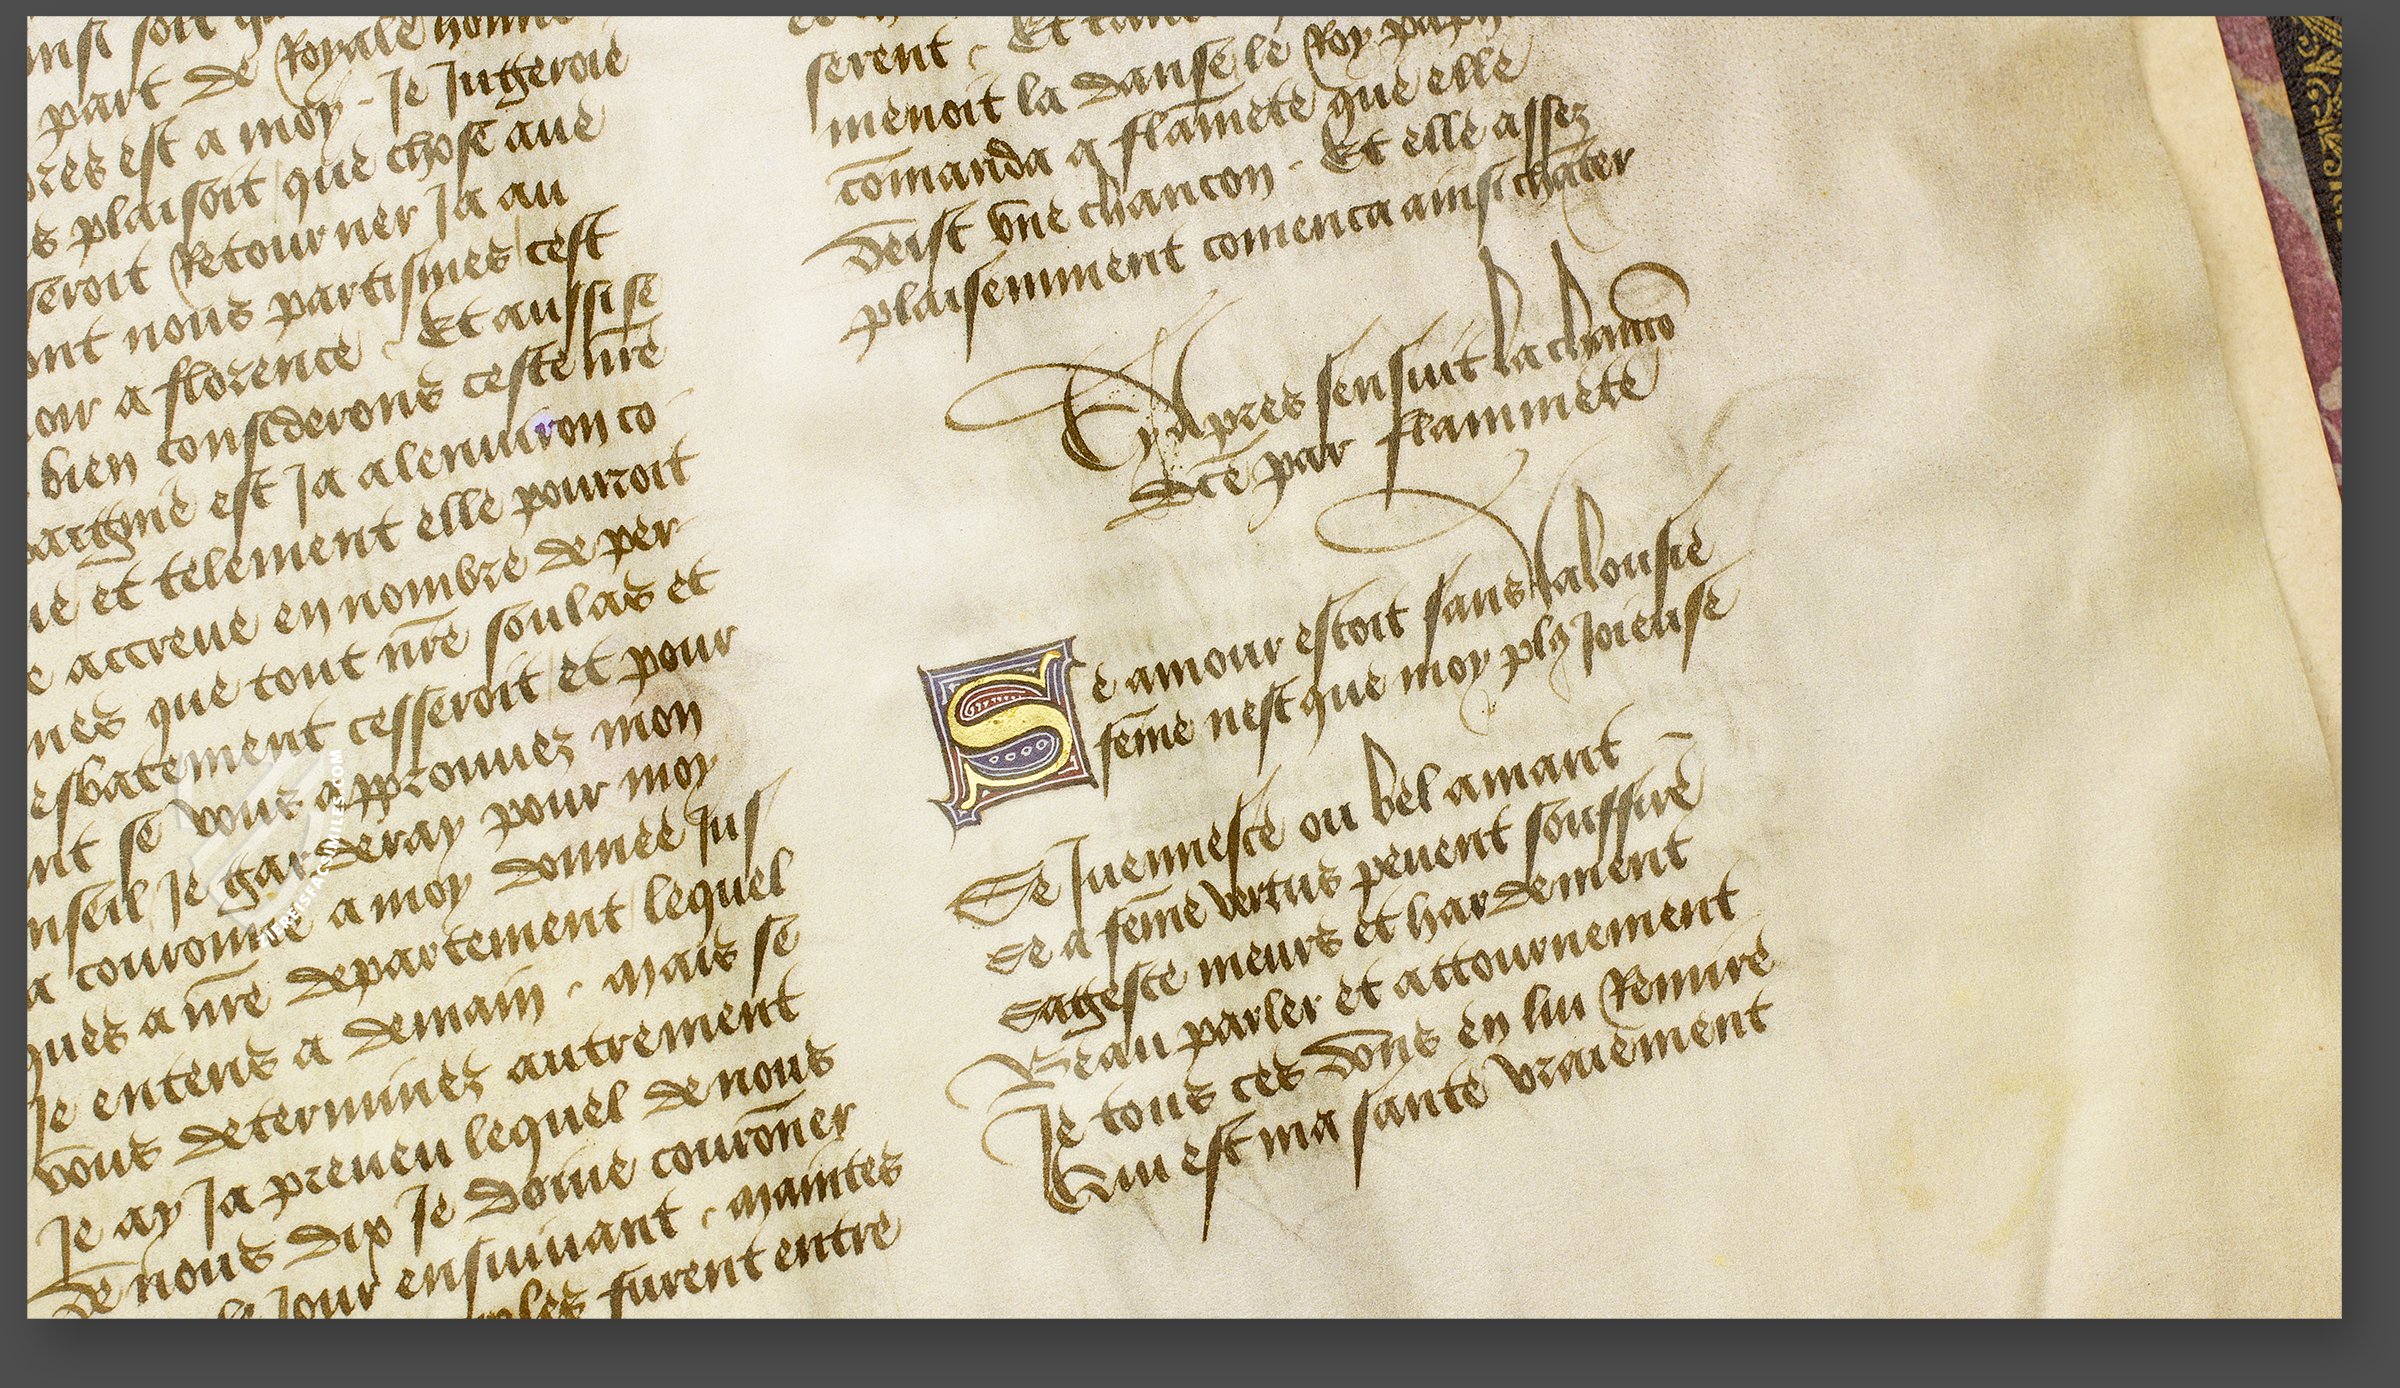 ainsi soit
part de Royale
est a moy - Je Jugeroie
plaisoit que chose aue
seroit Retourner Ja au
nous partismes cest
a florence . Et aussi se
bien considerons ceste nr̄e
est Ja alenuiron co
et telement elle pourroit
accreue en nombre de per
que tout nr̄e soulas et
esbatement cesseroit et pour
se vous approuuez mon
Je garderay pour moy
couronne a moy donnee Jus
ques a nr̄e departement lequel
Je entens a demain . Mais se
vous determinez autrement
Je ay Ja preueu lequel de nous
de nous dix Je doiue courōner
le Jour ensuiuant . Maintes
furent entre
serent . Et
menoit la danse le Roy
cōmanda a flāmete que elle
deist vne chancon . Et elle assez
plaisemment comenca ainsi chāter
Cy apres sensuit la chancō
dc̄e par flammete
Se amour estoit sans Jalousie
fēme nest que moy plꝯ Joieuse
Se Juennesce ou bel amant
Se a fēme vertus peuent souffire
Sagesce meurs et hardement
Beau parler et attournement
Je tous ces dons en lui Remire
Qui est ma sante vraiement